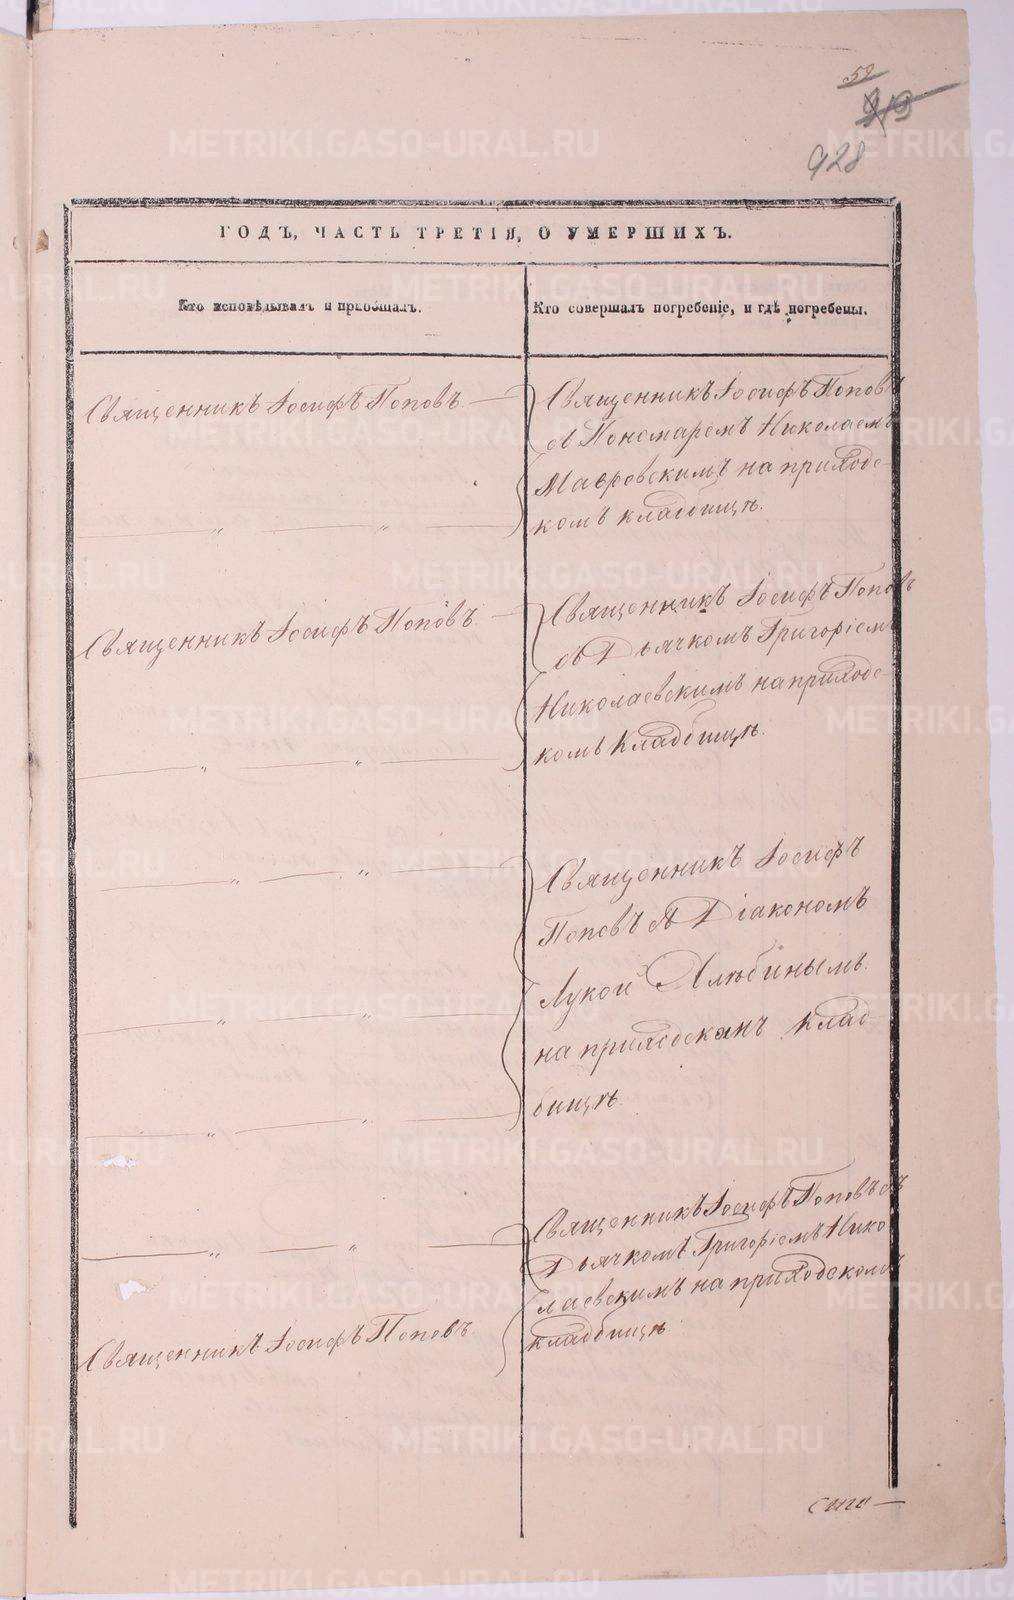 928
ГОДЪ, ЧАСТЬ ТРЕТІЯ, О УМЕРШИХЪ.
Кто исповѣдывалъ и пріобщалъ.
Кто совершалъ погребеніе, и гдѣ погребены.
Священникъ Іосифъ Поповъ.
Священникъ Іосифъ Поповъ
съ Пономаремъ Николаемъ
Мавровскимъ на приходс-
комъ кладбищѣ.
Священникъ Іосифъ Поповъ
Священникъ Іосифъ Поповъ
съ Дьячкомъ Григоріемъ
Николаевскимъ на приходс-
комъ кладбищѣ.
Священникъ Іосифъ
Поповъ съ Діакономъ
Лукой
на клад-
бищѣ.
Священникъ Іосифъ Поповъ съ
Дьячкомъ Григоріемъ Нико
лаевскимъ на приходскомъ
кладбищѣ
Священникъ Іосифъ Поповъ
METRIKI.GASO-URAL.RU